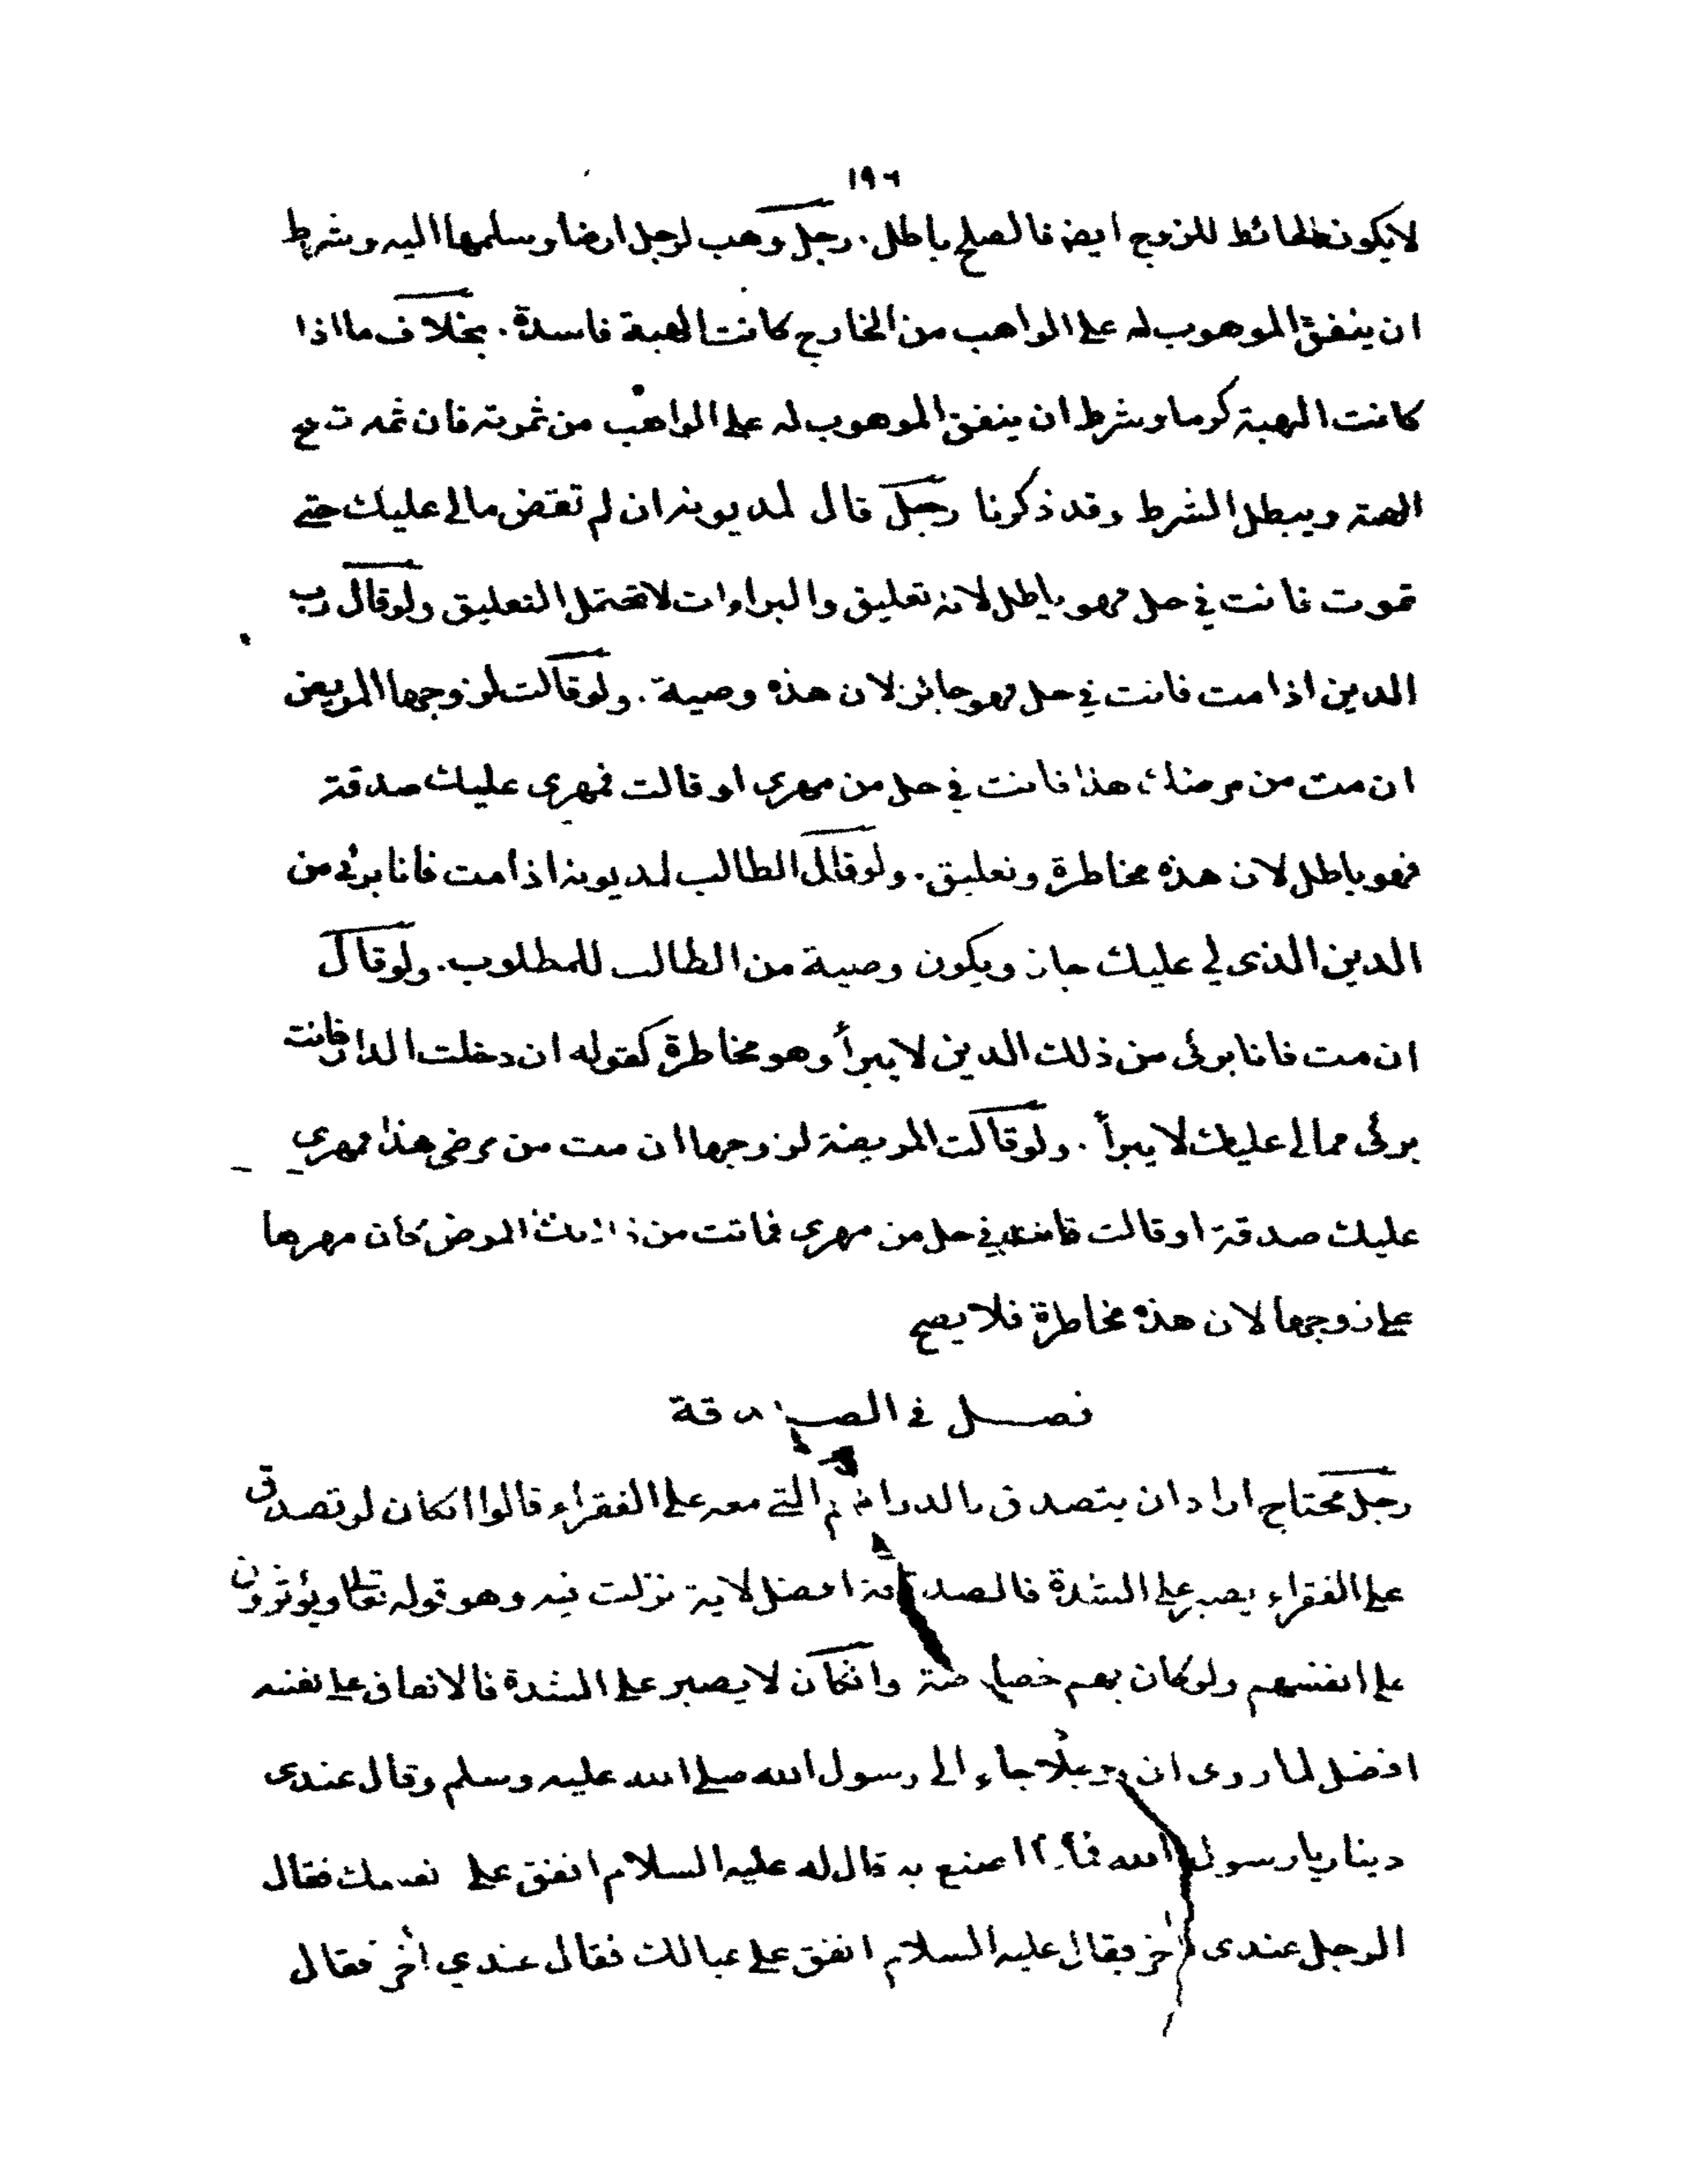 ١٩٦
لا يكون الحائط للزوج ايضا فالصلح باطل. رجل وهب لرجل ارضا وسلمها اليه وشرط
ان ينفق الموهوب له على الواهب من الخارج كانت الهبة فاسدة. بخلاف ما اذا
كانت الهبة كرما وشرط ان ينفق الموهوب له على الواهب من ثمرته فان ثمه تصح
الهبة ويبطل الشرط وقد ذكرنا رجل قال لمديونه ان لم تقض مالى عليك حتى
تموت فانت في حل فهو باطل لانه تعليق والبراءات لا تحتمل التعليق ولو قال رب
الدين اذا مت فانت في حل فهو جائز لان هذه وصية. ولو قالت لزوجها المريض
ان مت من مرضك هذا فانت في حل من مهري او قالت فمهرى عليك صدقة
فهو باطل لان هذه مخاطرة وتعليق. ولو قال الطالب لمديونه اذا مت فانا برئ من
الدين الذى لي عليك جاز ويكون وصية من الطالب للمطلوب. ولو قال
ان مت فانا برئ من ذلك الدين لا يبرأ وهو مخاطرة كقوله ان دخلت الدار فانت
برئ مما لى عليك لا يبرأ. ولو قالت المريضة لزوجها ان مت من مرضى هذا فمهري
عليك صدقة او قالت فانت في حل من مهري فماتت من ذلك المرض كان مهرها
على زوجها لان هذه مخاطرة فلا يصح
فصل في الصدقة
رجل محتاج اراد ان يتصدق بالدراهم التي معه على الفقراء قالوا ان كان لو تصدق
على الفقراء يصبر على الشدة فالصدقة افضل لاية نزلت فيه وهو قوله تعالى ويؤثرون
على انفسهم ولو كان بهم خصاصة وان كان لا يصبر على الشدة فالانفاق على نفسه
افضل لما روى ان رجلا جاء الى رسول الله صلى الله عليه وسلم وقال عندى
دينار يا رسول الله فما اصنع به قال له عليه السلام انفق على نفسك فقال
الرجل عندى اخر فقال عليه السلام انفق على عيالك فقال عندي اخر فقال